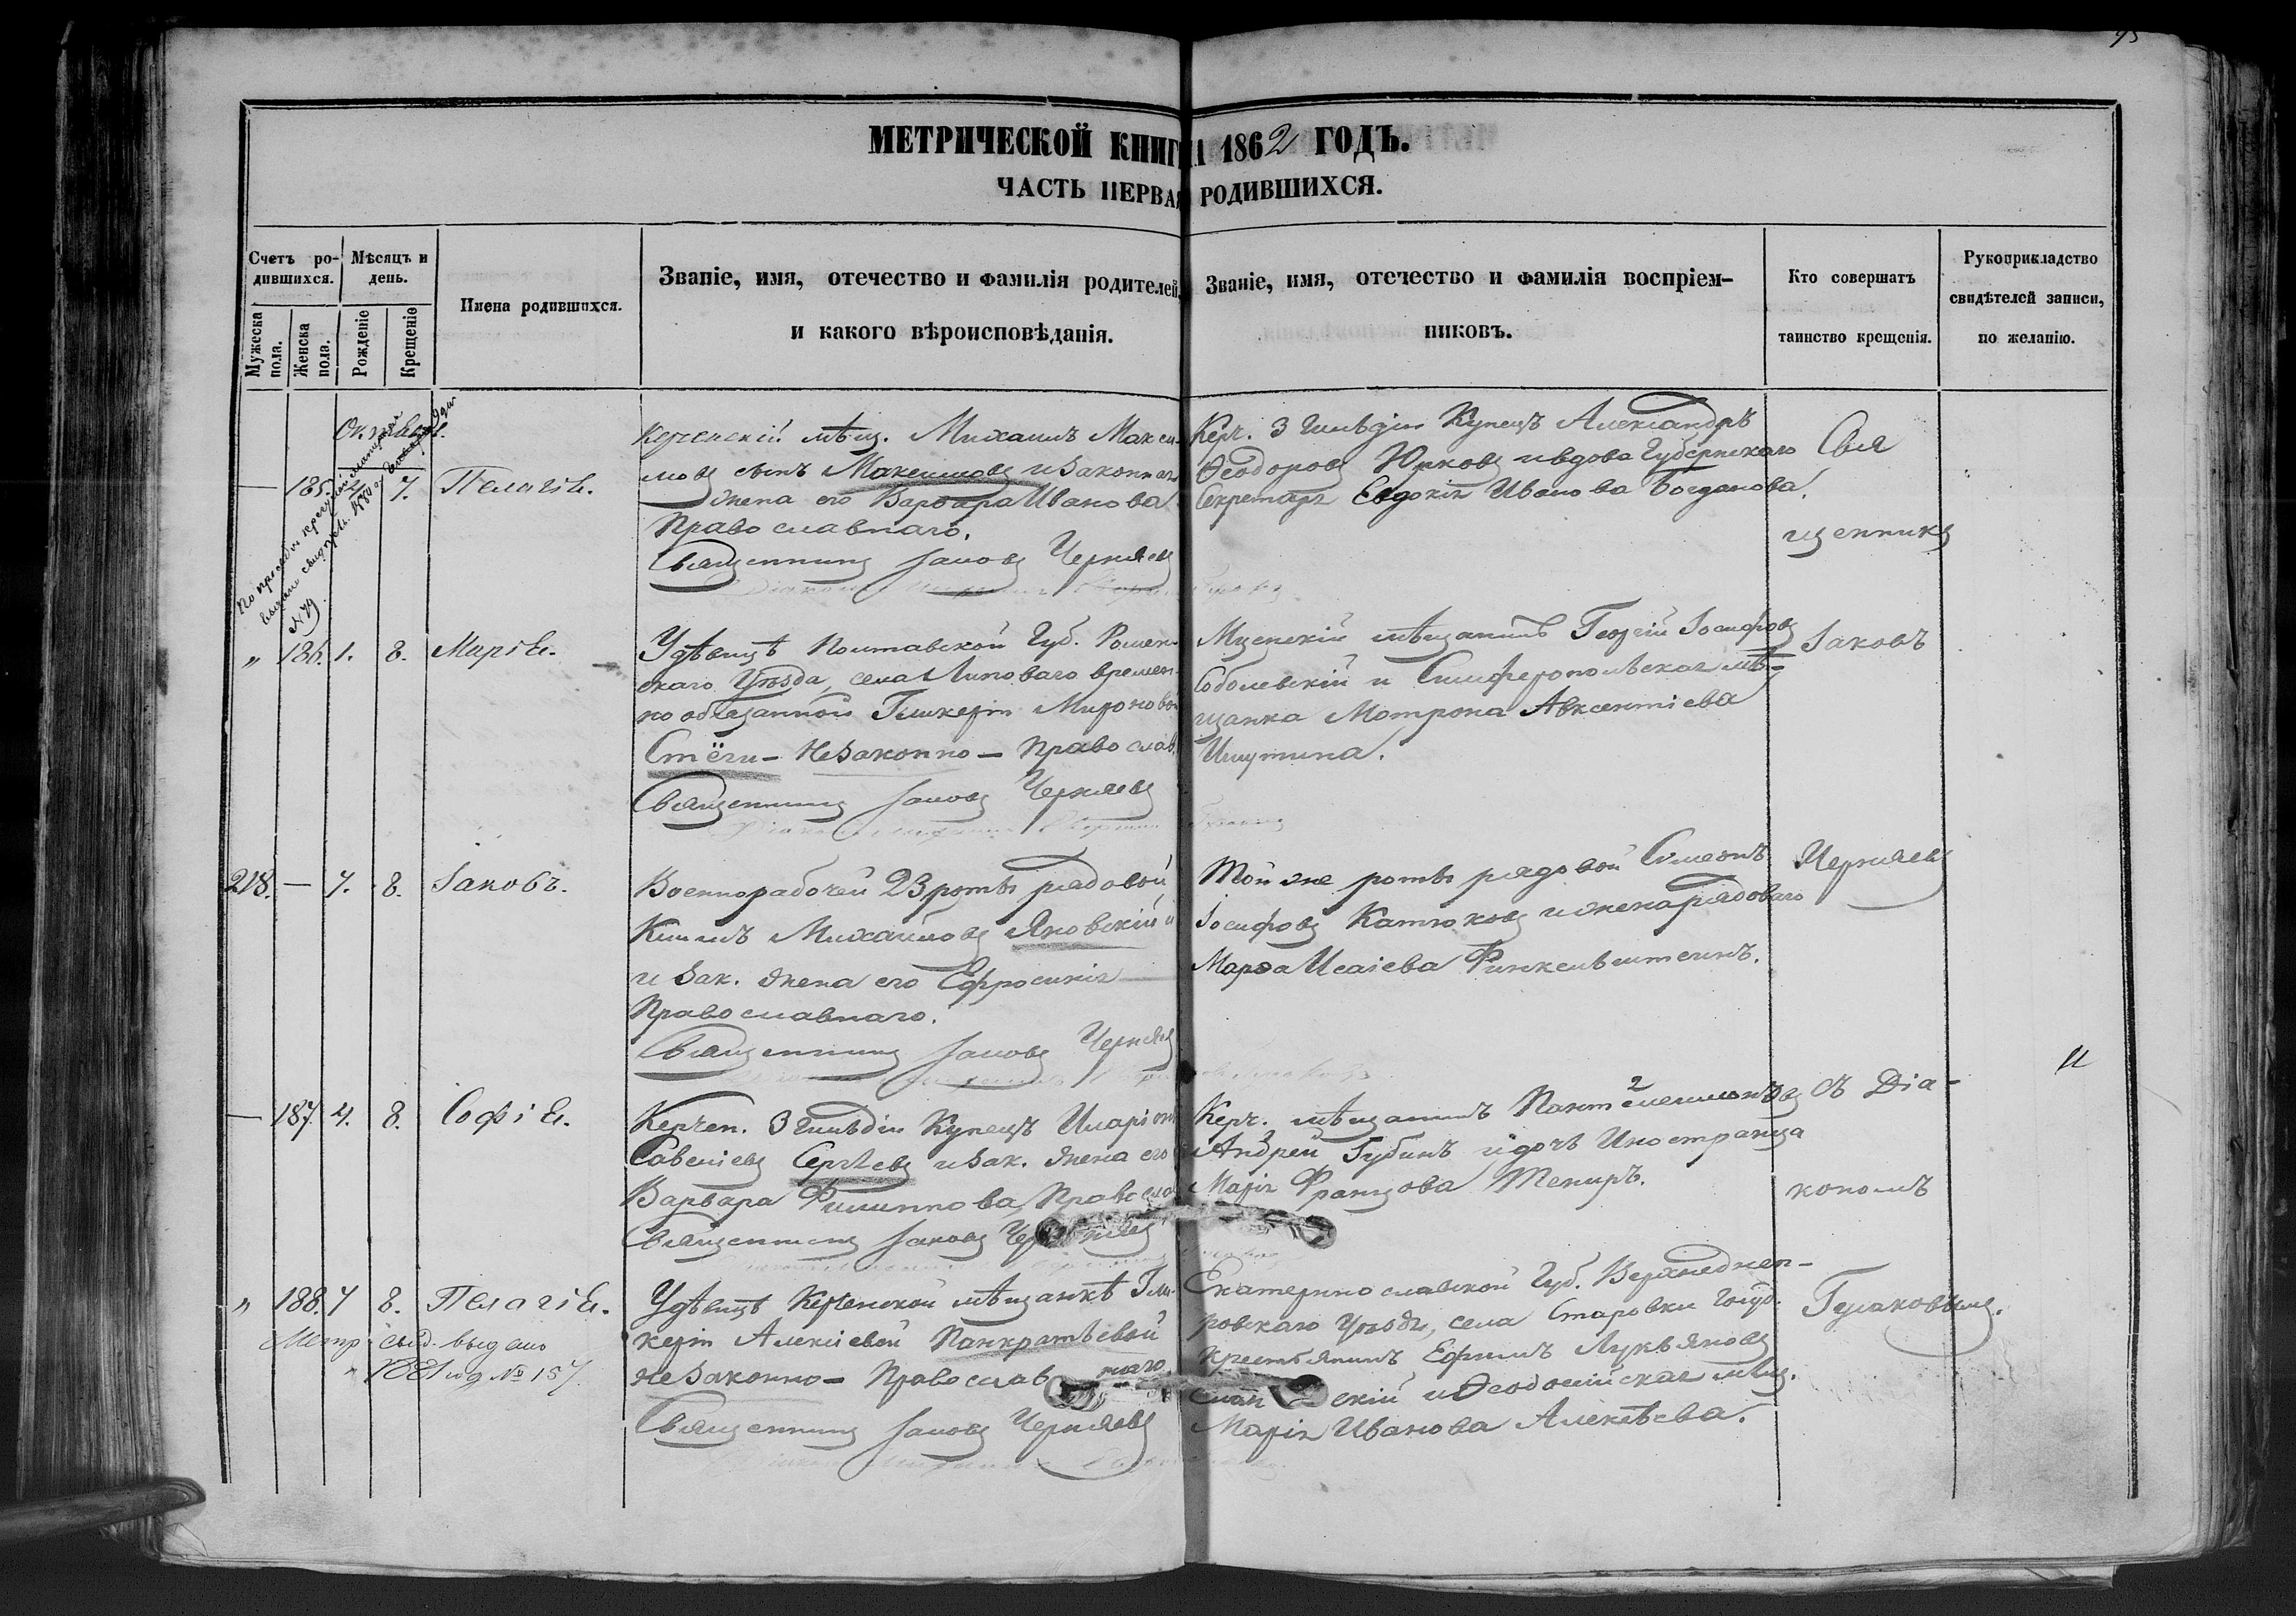 МЕТРИЧЕСКОЙ КНИГИ 1862 ГОДЪ.
ЧАСТЬ ПЕРВАЯ РОДИВШИХСЯ.
Счетъ ро-
дившихся.
Мужеска пола.
Женска пола.
Мѣсяцъ и
день.
Рожденіе
Крещеніе
Имена родившихся.
Званіе, имя, отечество и фамилія родителей,
и какого вѣроисповѣданія.
Званіе, имя, отечество и фамилія воспріем-
никовъ.
Кто совершатъ
таинство крещенія.
Рукоприкладство
свидѣтелей записи,
по желанію.
— 185. 4. 7. Пелагія.
Керченскій мѣщ. Михаилъ Макси-
мовъ сынъ Максимовъ и законная
жена его Варвара Иванова
Православнаго.
Священникъ Іаковъ Черняевъ
Керч. 3 гильдіи Купецъ Александръ
Ѳеодоровъ Юрковъ и вдова Губернскаго
Секретаря Евдокія Иванова Богданова.
№ 79.
„ 186. 1. 8. Марія.
Удѣвицѣ Полтавской Губ. Ромен-
скаго Уѣзда, села Липоваго времен-
но обязанной Гликеріи Мироновой
Стёги - Незаконно - Православ.
Священникъ Іаковъ Черняевъ
Мценскій мѣщанинъ Георгій Іосифовъ
Соболевскій и Симферопольская мѣ-
щанка Мотрона Авксентіева
Ишутина.
218. — 7. 8. Іаковъ.
Военнорабочей 23 роты рядовой
Михайловъ Яновскій и
и зак. жена его Ефросинія
Православнаго.
Священникъ Іаковъ Черняевъ
Той же роты рядовой Симеонъ
Іосифовъ Катюковъ и жена рядоваго
Марѳа Исаіева Финкельштеинъ.
— 187. 4. 8. Софія.
Керчен. 3 гильдіи Купецъ Иларіонъ
Савеліевъ Сергѣевъ и зак. жена его
Варвара Филиппова, Правосла
Священникъ Іаковъ Черняевъ
Керч. мѣщанинъ Пантелеимоновъ
Андрей Губинъ и дочь Иностранца
Марія Францова Тениръ.
„ 188. 7 8. Пелагія.
Метр. свид. выдано
№ 157.
Удѣвицѣ Керченской мѣщанкѣ Гли-
керіи Алексіевой Панкратьевой
незаконно - Православнаго
Священникъ Іаковъ Черняевъ
Екатеринославской Губ. Верхнеднеп-
ровскаго Уѣзда, села Старовки
крестьянинъ Ефимъ Лукьяновъ
скій и Ѳеодосійская мѣщ.
Марія Иванова Алексѣева.
Свя
щенникъ
Іаковъ
Черняевъ
съ Діа-
кономъ
Гулаковымъ.